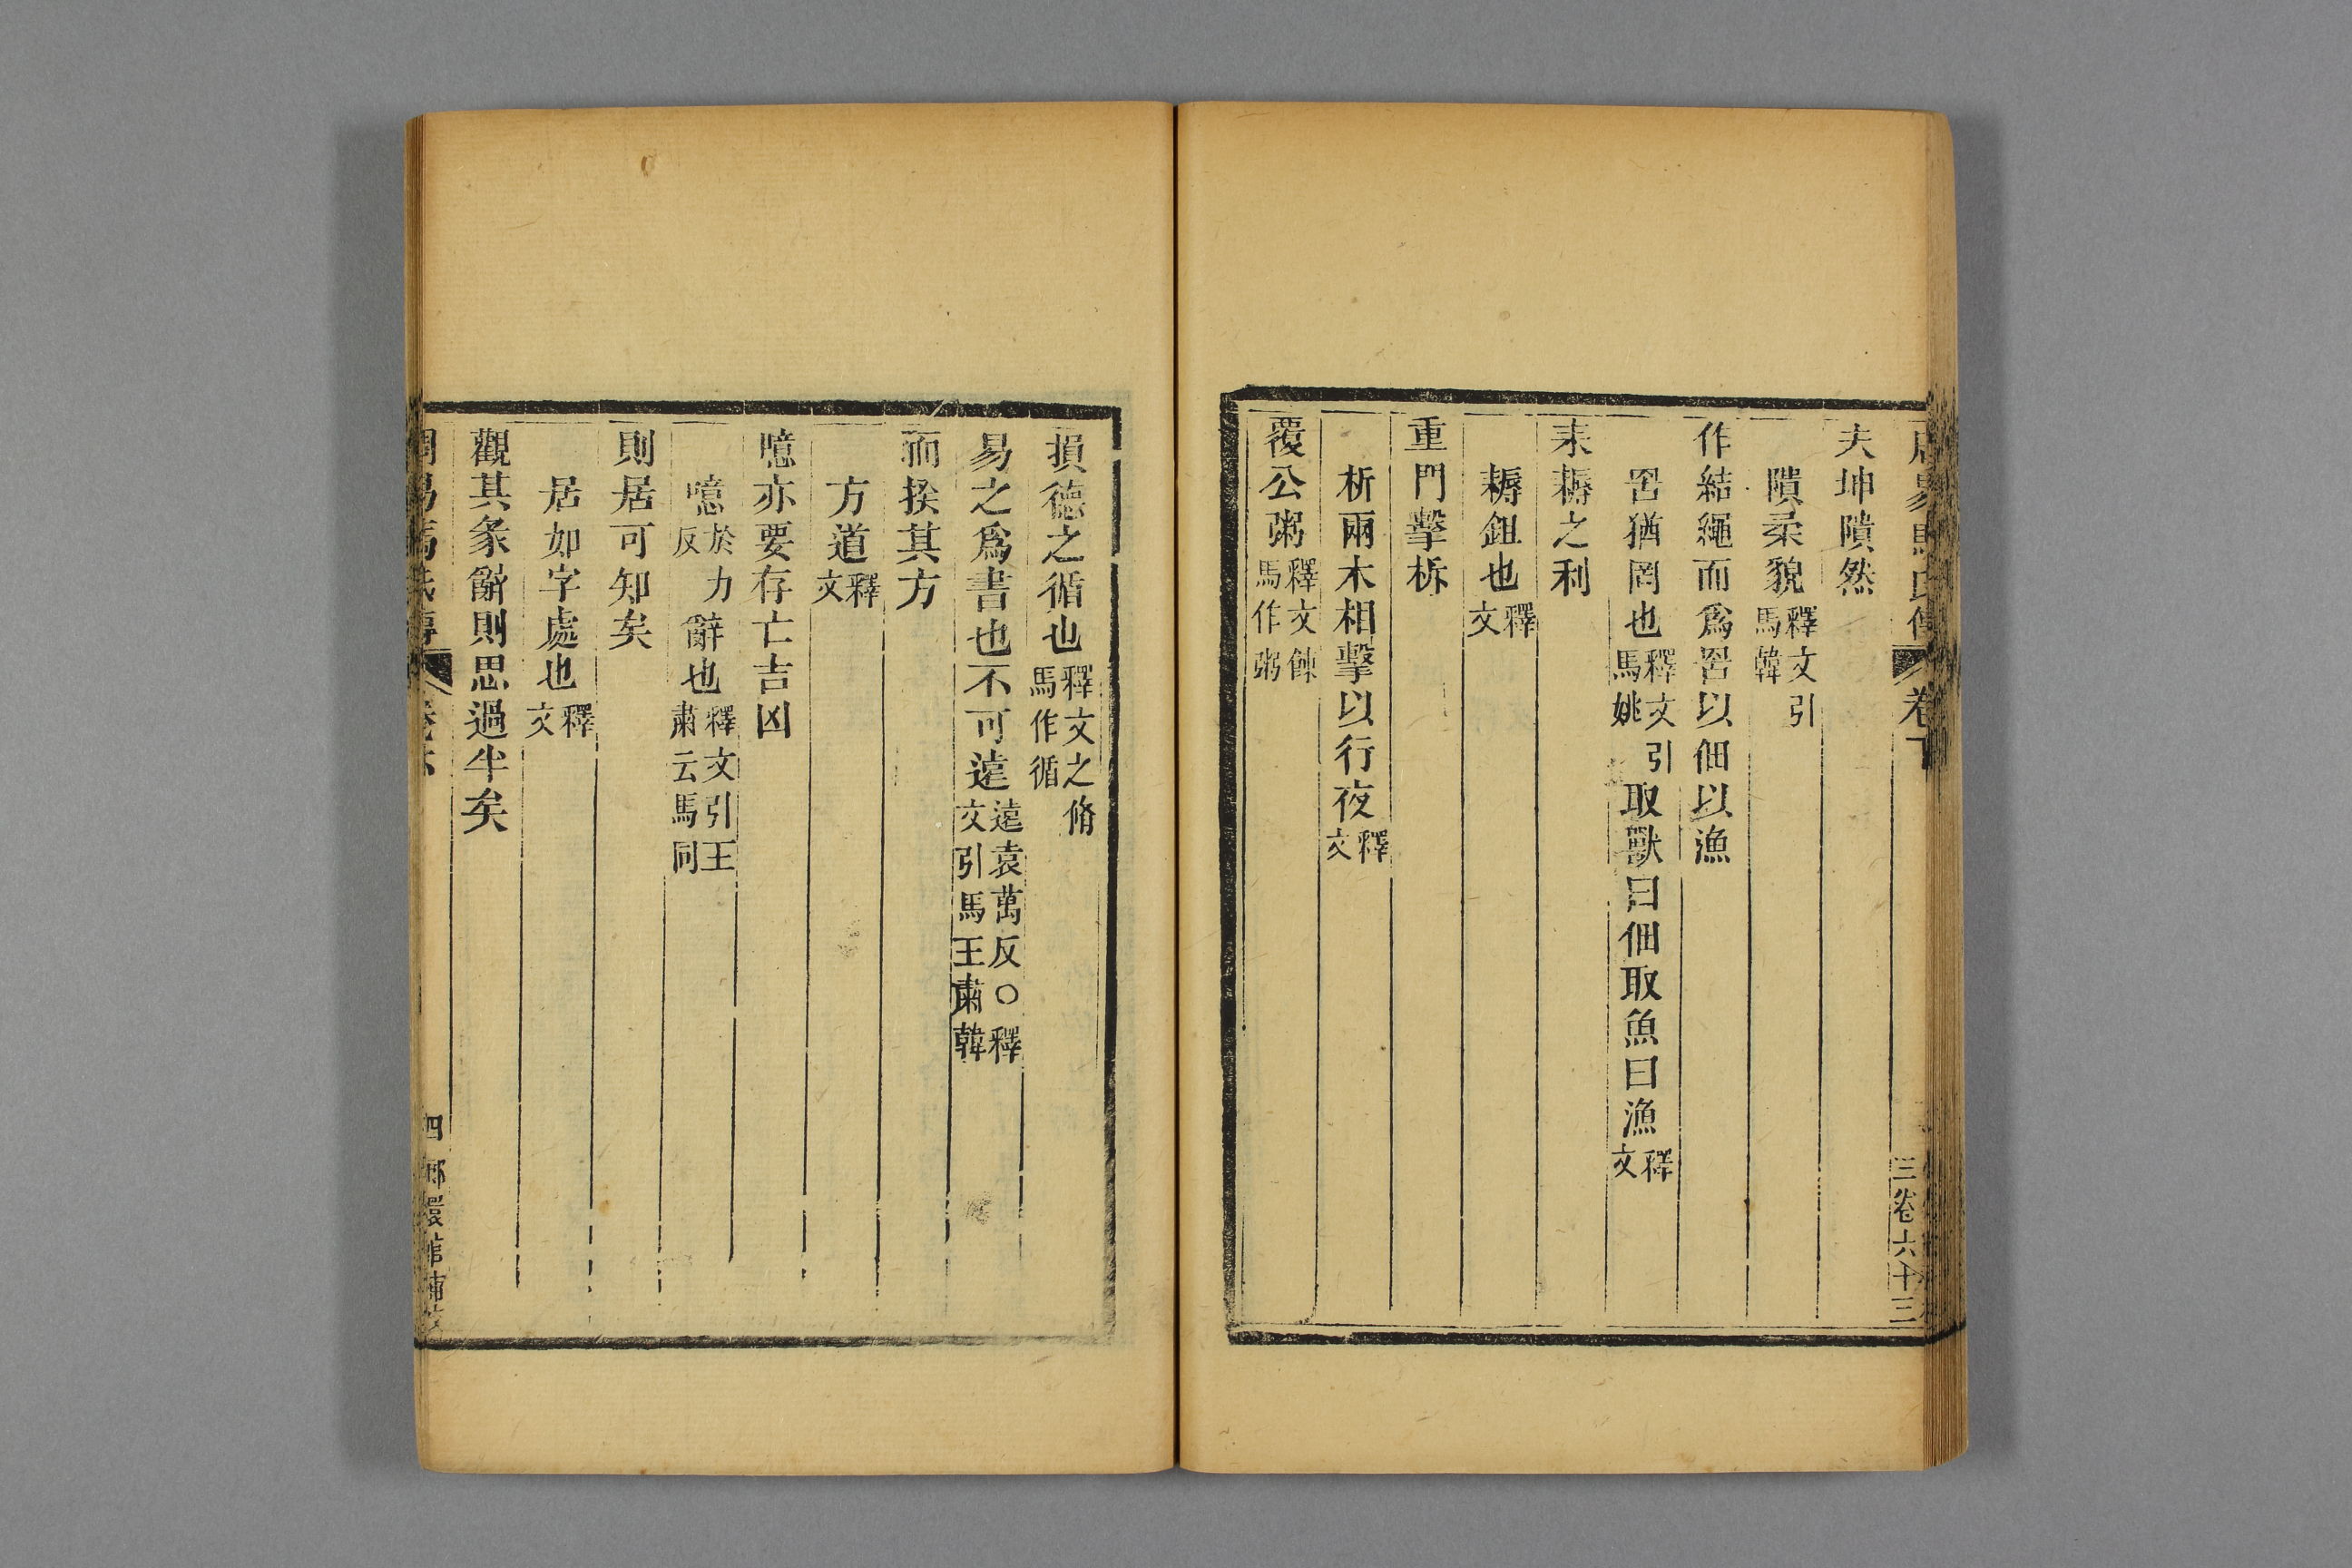 周易馬氏傳 卷下 三 卷六十三
夫坤隤然
隤柔貌釋文引馬韓
作結繩而爲罟以佃以漁
罟猶罔也釋文引馬姚取獸曰佃取魚曰漁釋文
耒耨之利
耨鉏也釋文
重門擊柝
柝兩木相擊以行夜釋文
覆公粥釋文餗馬作粥
損德之循也釋文之脩馬作循
易之爲書也不可遠遠袁萬反○釋文引馬王肅韓
而揆其方
方道釋文
噫亦要存亡吉凶
噫於力反辭也釋文引王肅云馬同
則居可知矣
居如字處也釋文
觀其彖辭則思過半矣
周易馬氏傳 四